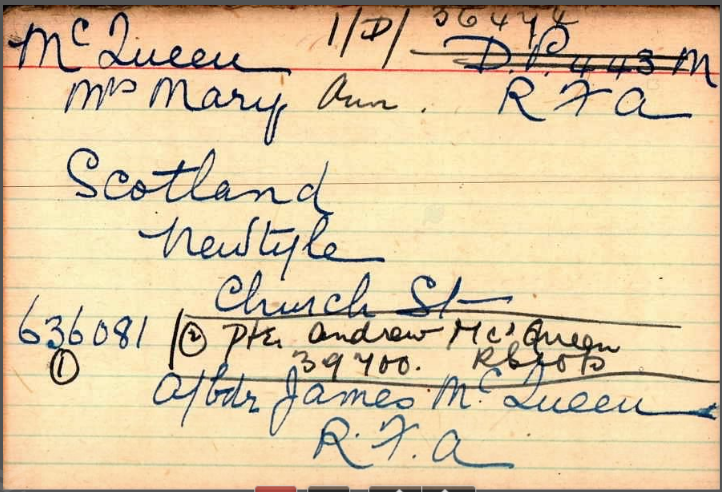 1/D/ 36474
McQueen D.P. 443 M
Mrs Mary Ann. R F A
Scotland
Newtyle
Church St
636081 ② Pte. Andrew McQueen
① 39400.
A/bdr James McQueen
R.F.A